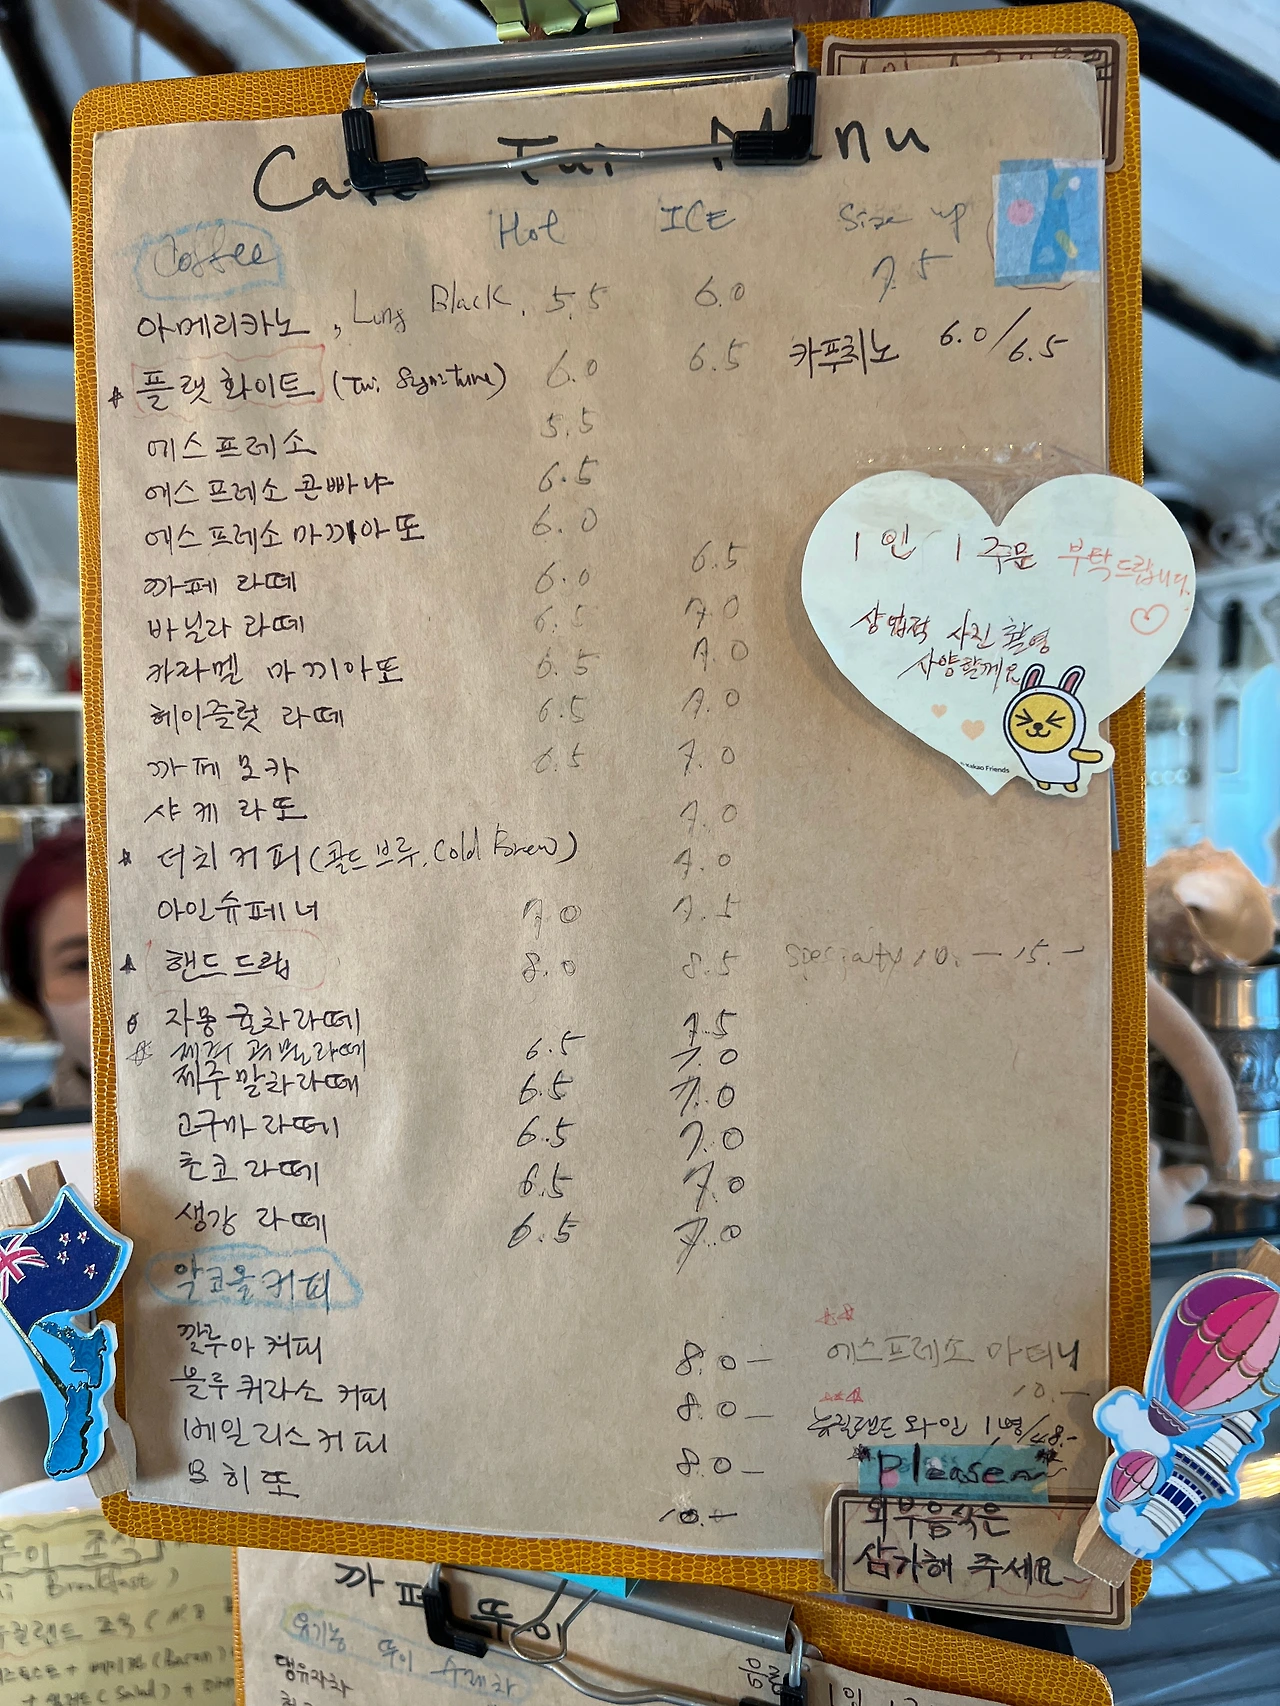 Cafe Tui Menu
Coffee Hot ICE Size up
7.5
아메리카노, Long Black. 5.5 6.0
플랫화이트 (Tui Signature) 6.0 6.5 카푸치노 6.0/6.5
에스프레소 5.5
에스프레소 콘빠냐 6.5
에스프레소 마끼아또 6.0
까페 라떼 6.0 6.5
바닐라 라떼 6.5 7.0
카라멜 마끼아또 6.5 7.0
헤이즐럿 라떼 6.5 7.0
까페 모카 6.5 7.0
샤케라또 7.0
더치커피(콜드브루, Cold Brew) 7.0
아인슈페너 7.0 7.5
핸드드립 8.0 8.5 Specialty 10.- 15.-
자몽 라떼 7.5
제주 라떼 6.5 7.0
제주말차라떼 6.5 7.0
고구마라떼 6.5 7.0
초코라떼 6.5 7.0
생강 라떼 6.5 7.0
악코올커피
깔루아 커피 8.0-
블루 퀴라소 커피 8.0-
베일리스커피 8.0-
모히또 10.-
에스프레소 마티니
10.-
뉴질랜드 와인 1병/48.-
1인 1주문 부탁드립니다.
상업적 사진 촬영
사양할께요
© Kakao Friends
Please
외부음식은
삼가해 주세요
까페 뚜이
유기농 뚜이 수제차
댕유자차
Breakfast)